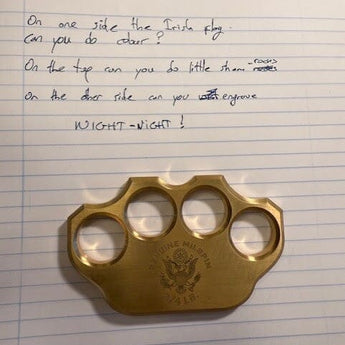 On one side the Irish flag.
Can you do colour?
On the top can you do little sham-rocks
On the other side can you engrave
NIGHT-NIGHT!
GENUINE
1/4 LB.